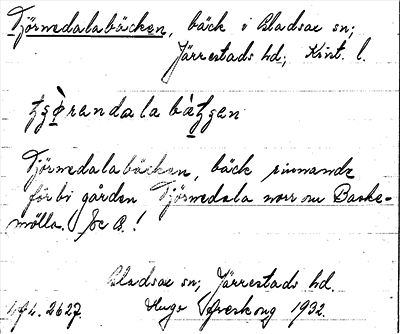 Tjörnedalabäcken, bäck i Gladsax sn;
Järrestads hd; Krist. l.
Tjörnedalabäcken, bäck rinnande
förbi gården Tjörnedala norr om Baske-
mölla.
Gladsax sn, Järrestads hd.
Hugo Areskoug 1932.